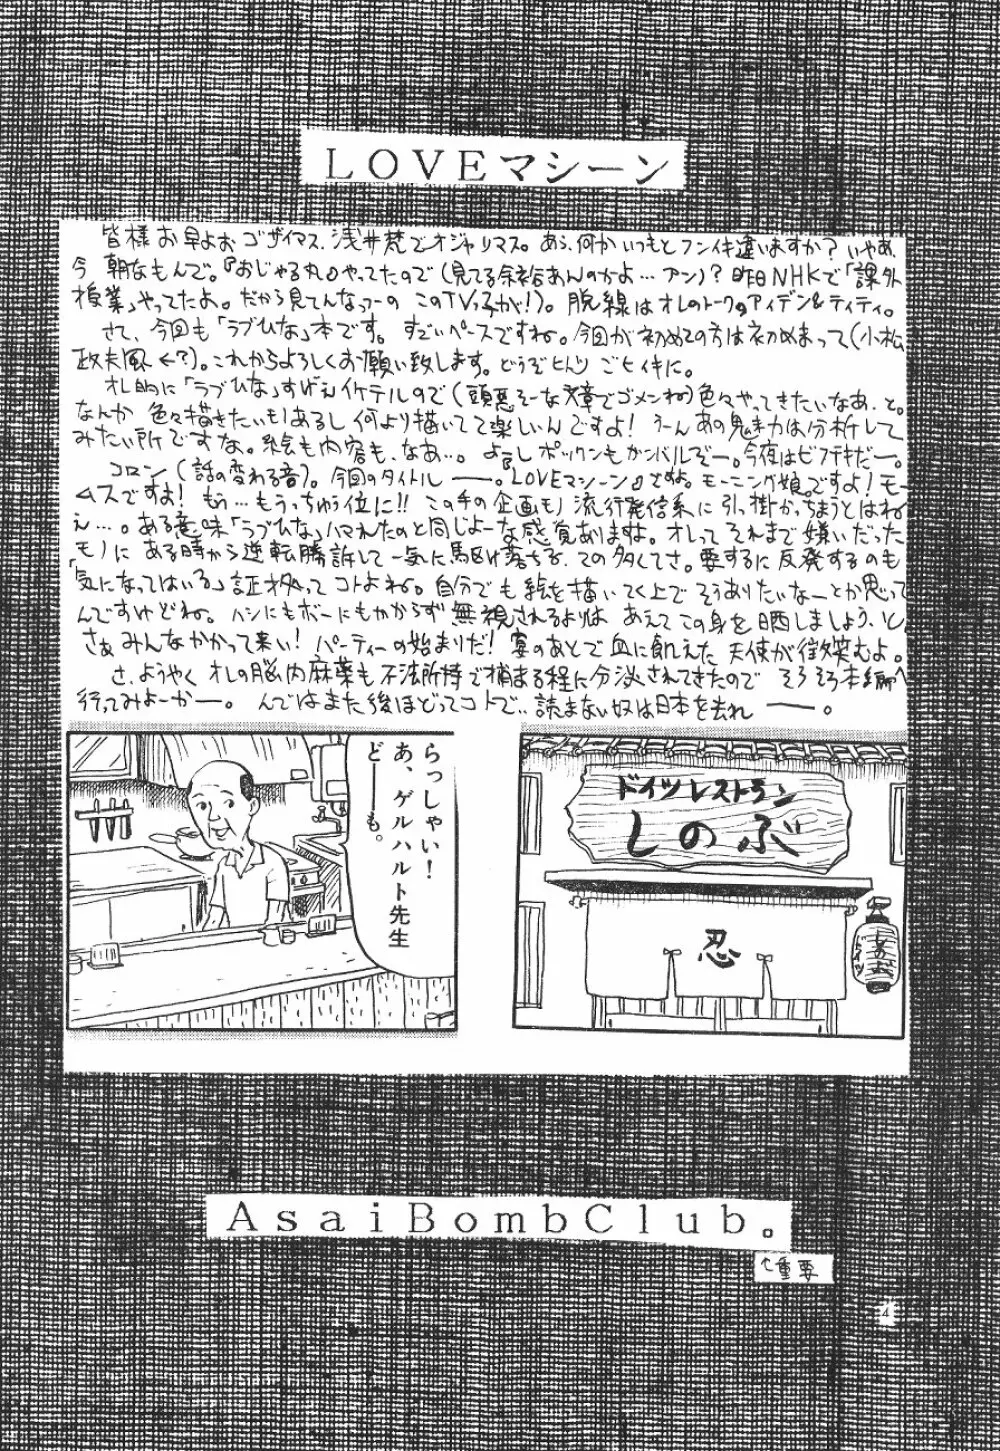 LOVEマシーン
皆様お早よおゴザイマス、浅井梵でオジャリマス。あら、何かいつもとフンイキ違いますか？いやあ、
今朝なもんで。『おじゃる丸』やってたので(見てる余裕あんのかよ…アン)？昨日NHKで「課外
授業」やってたよ。だから見てんなっつーのこのTVっ子が！)。脱線はオレのトークのアイデン&ティティ。
さて、今回も「ラブひな」本です。すごいペースですね。今回が初めての方は初めまして(小松
政夫風←？)。これからよろしくお願い致します。どうぞヒトツごヒイキに。
オレ的に「ラブひな」すげえイケテルので(頭悪そーな文章でゴメンね)色々やってきたいなあ、と。
なんか色々描きたいもノあるし何より描いてて楽しいんですよ！うーんあの魔力は分析して
みたい所ですな。絵も内容も、なあ…。よぉしボックンもガンバルぞー。今夜はビフテキだー。
コロン(話の変わる音)。今回のタイトル――。『LOVEマシーン』ですよ。モーニング娘。ですよ！モー
ムスですよ！もぅ…もぅっちゅう位に!!この手の企画モノ流行発信系に引っ掛かっちまうとはね
え…。ある意味「ラブひな」ハマれたのと同じよーな感覚ありますね。オレってそれまで嫌いだった
モノにある時から逆転勝訴して一気に駆け落ちるての多くてさ。要するに反発するのも
「気になってはいる」証拠ってコトよね。自分でも絵を描いてく上でそうありたいなーとか思って
んですけどね。ハシにもボーにもかからず無視されるよりは、あえてこの身を晒しましょう、と。
さぁみんなかかって来い！パーティーの始まりだ！宴のあとで血に飢えた天使が微笑むよ。
さ、ようやくオレの脳内麻薬も不法所持で捕まる程に分泌されてきたのでそろそろ本編へ
行ってみよーかー。んではまた後ほどってコトで、読まない奴は日本を去れ――。
ドイツレストラン
しのぶ
忍
しのぶ
ドイツ
らっしゃい！
あ、ゲルハルト先生
ど――も。
AsaiBombClub。
↑重要
4